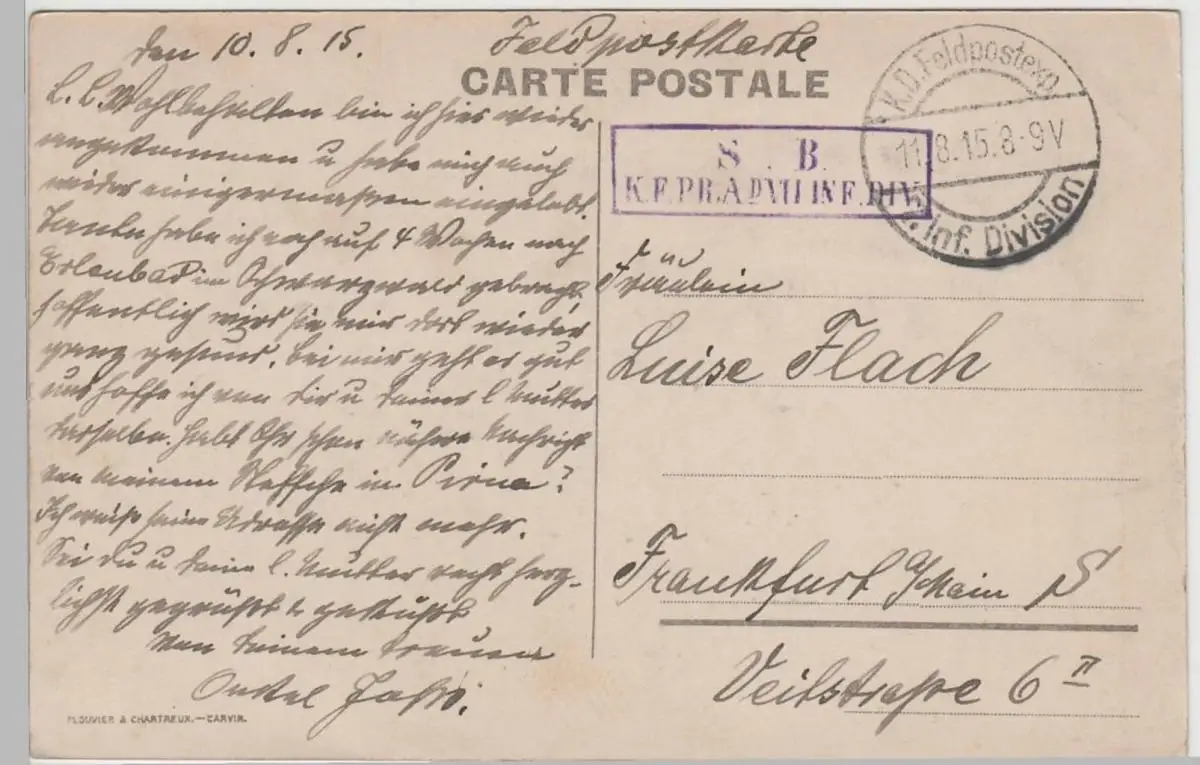 den 10. 8. 15.
Feldpostkarte
CARTE POSTALE
L. L. Wohlbehalten bin ich hier wieder
angekommen u habe mich auch
wieder einigermaßen eingelebt.
Tante habe ich noch auf 4 Wochen nach
Erlenbad im Schwarzwald gebracht,
hoffentlich wird sie mir dort wieder
ganz gesund. Bei mir geht es gut
und hoffe ich von dir u deiner l Mutter
dasselbe. Habt Ihr schon nähere Nachricht
von meinem in Pirna?
Ich weiß seine Adresse nicht mehr.
Sei du u deine l. Mutter recht herz-
lichst gegrüßt & geküßt
von deinem treuen
Onkel
PLOUVIER & CHARTREUX.—CARVIN.
S. B.
K.F.PR.A.D.VII INF.DIV.
K.D. Feldpostexp.
11.8.15.8-9V
Inf. Division
Fräulein
Luise Flach
Frankfurt a/Main S
Veilstraße 6 II